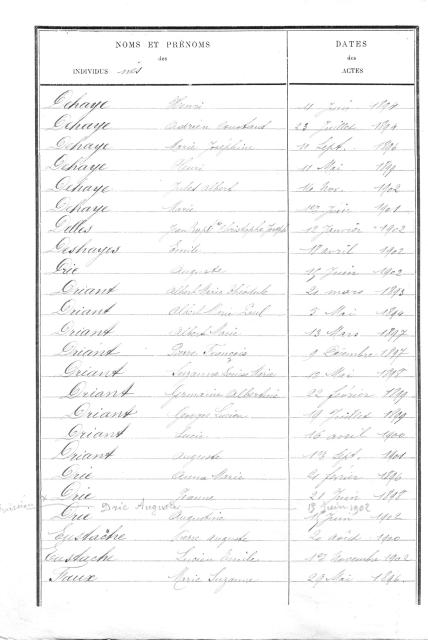 NOMS ET PRÉNOMS DATES
des des
INDIVIDUS nés ACTES
Dehaye Henri Juin 1894
Dehaye Adrien Constant 23 Juillet 1894
Dehaye Marie Joséphine 11 Sept. 1896
Dehaye Henri 11 Mai 1899
Dehaye Jules Albert Nov. 1902
Dehaye Marie Juin 1901
Delles Jean Bapt^te Christophe Joseph 12 Janvier 1902
Deshayes Emile avril 1902
Drie Auguste Juin 1902
Driant Albert Marie Théodule mars 1893
Driant Albert Marie Paul 5 Mai 1894
Driant Albert Marie 13 Mars 1897
Driant Pierre François 9 Décembre 1897
Driant Suzanne Louise Marie Mai 1898
Driant Germaine Albertine 22 février 1899
Driant Georges Lucien Juillet 1899
Driant Lucie 16 avril 1900
Driant Auguste Sept. 1901
Drie Anna Marie février 1896
Drie Jeanne 21 Juin 1898
Drie Auguste 18 Juin 1902
Drie Augustine Juin 1902
Eustache Pierre Auguste août 1900
Eustache Lucien Emile Novembre 1902
Faux Marie Suzanne 27 Mai 1896